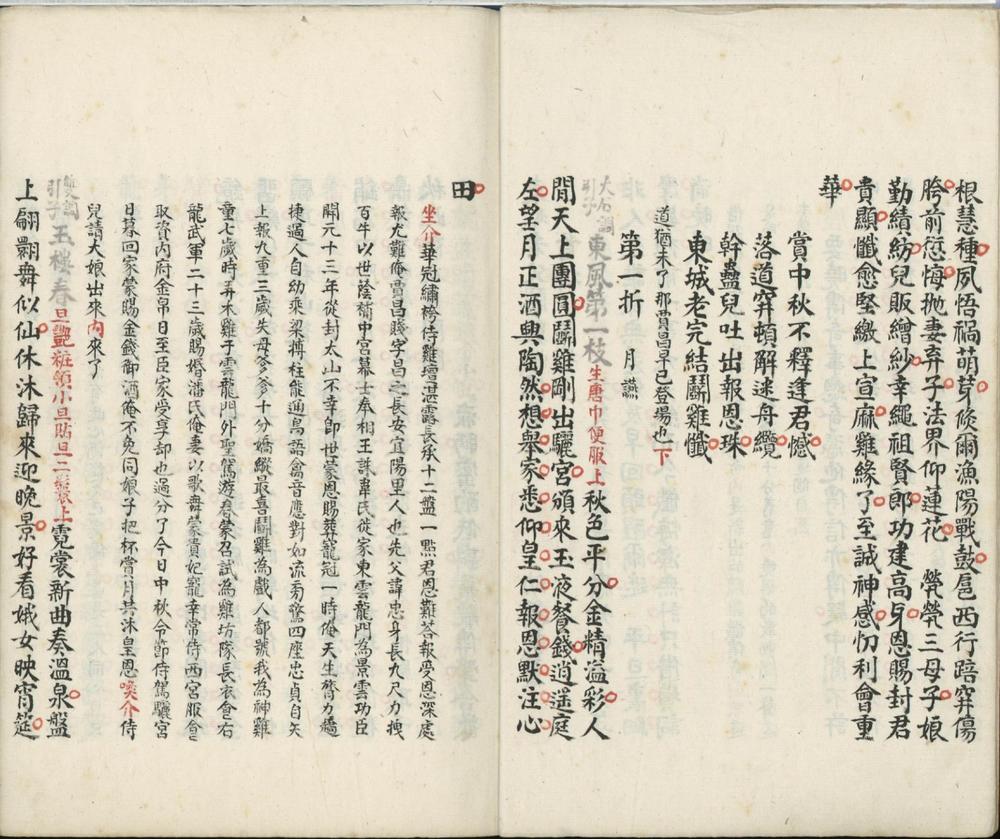 根慧種夙悟禍萌芽倐爾漁陽戰鼓扈西行踣穽傷
胯前愆悔抛妻弃子法界仰蓮花　煢煢三母子娘
勤績紡兒販繒紗幸繩祖賢郎功建高身恩賜封君
貴顯懺愈堅繳上宣麻雞緣了至誠神感忉利會重
華
賞中秋不釋逢君憾
落道穽頓解迷舟纜
幹蠱兒吐出報恩珠
東城老完結鬭雞懺
道猶未了那賈昌早已登場也下
第一折　月讌
大石調引子東風第一枝生唐巾便服上秋色平分金精溢彩人
間天上團圓鬭雞剛出驪宮頒來玉液餐錢逍遥庭
左望月正酒興陶然想舉家悉仰皇仁報恩默注心
田
坐介華冠繡袴侍雞壇湛露長承十二盤一㸃君恩難荅報受恩深處
報尤難俺賈昌賤字昌之長安宜陽里人也先父諱忠身長九尺力拽
百牛以世蔭補中宮幕士奉相王誅韋氏徙家東雲龍門為景雲功臣
開元十三年從封太山不幸卽世蒙恩賜葬寵冠一時俺天生膂力趫
捷過人自幼乗梁摶柱能通鳥語禽音應對如流秀驚四座忠貞自矢
上報九重三歲失母爹爹十分嬌縱最喜鬭雞為戲人都號我為神雞
童七歲時弄木雞于雲龍門外聖駕游春蒙召試為雞坊隊長衣食右
龍武軍二十三歲賜婚潘氏俺妻以歌舞蒙貴妃寵幸常侍西宮服食
取資内府金帛日至臣家受享却也過分了今日中秋令節侍駕驪宮
日暮回家蒙賜金錢御酒俺不免同娘子把杯賞月共沐皇恩喚介侍
兒請大娘出來内來了
雙調引子玉樓春旦艷粧領小旦貼旦二鬟上霓裳新曲奏溫泉盤
上翩翾舞似仙休沐歸來迎晚景好看娥女映宵筵